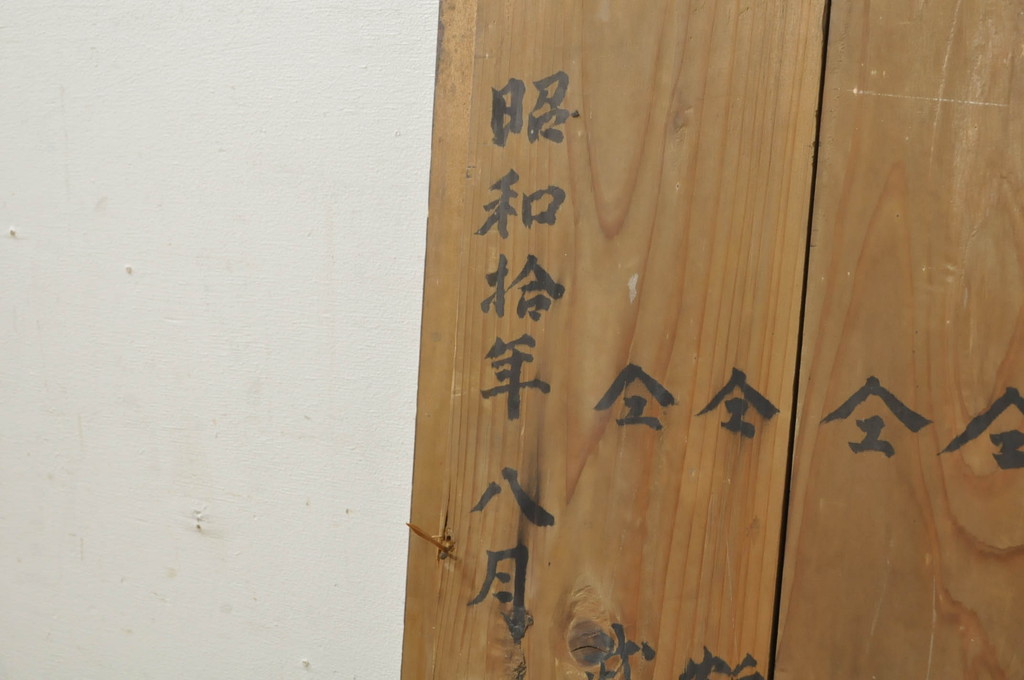 昭和拾年八月
仝
仝
仝
仝